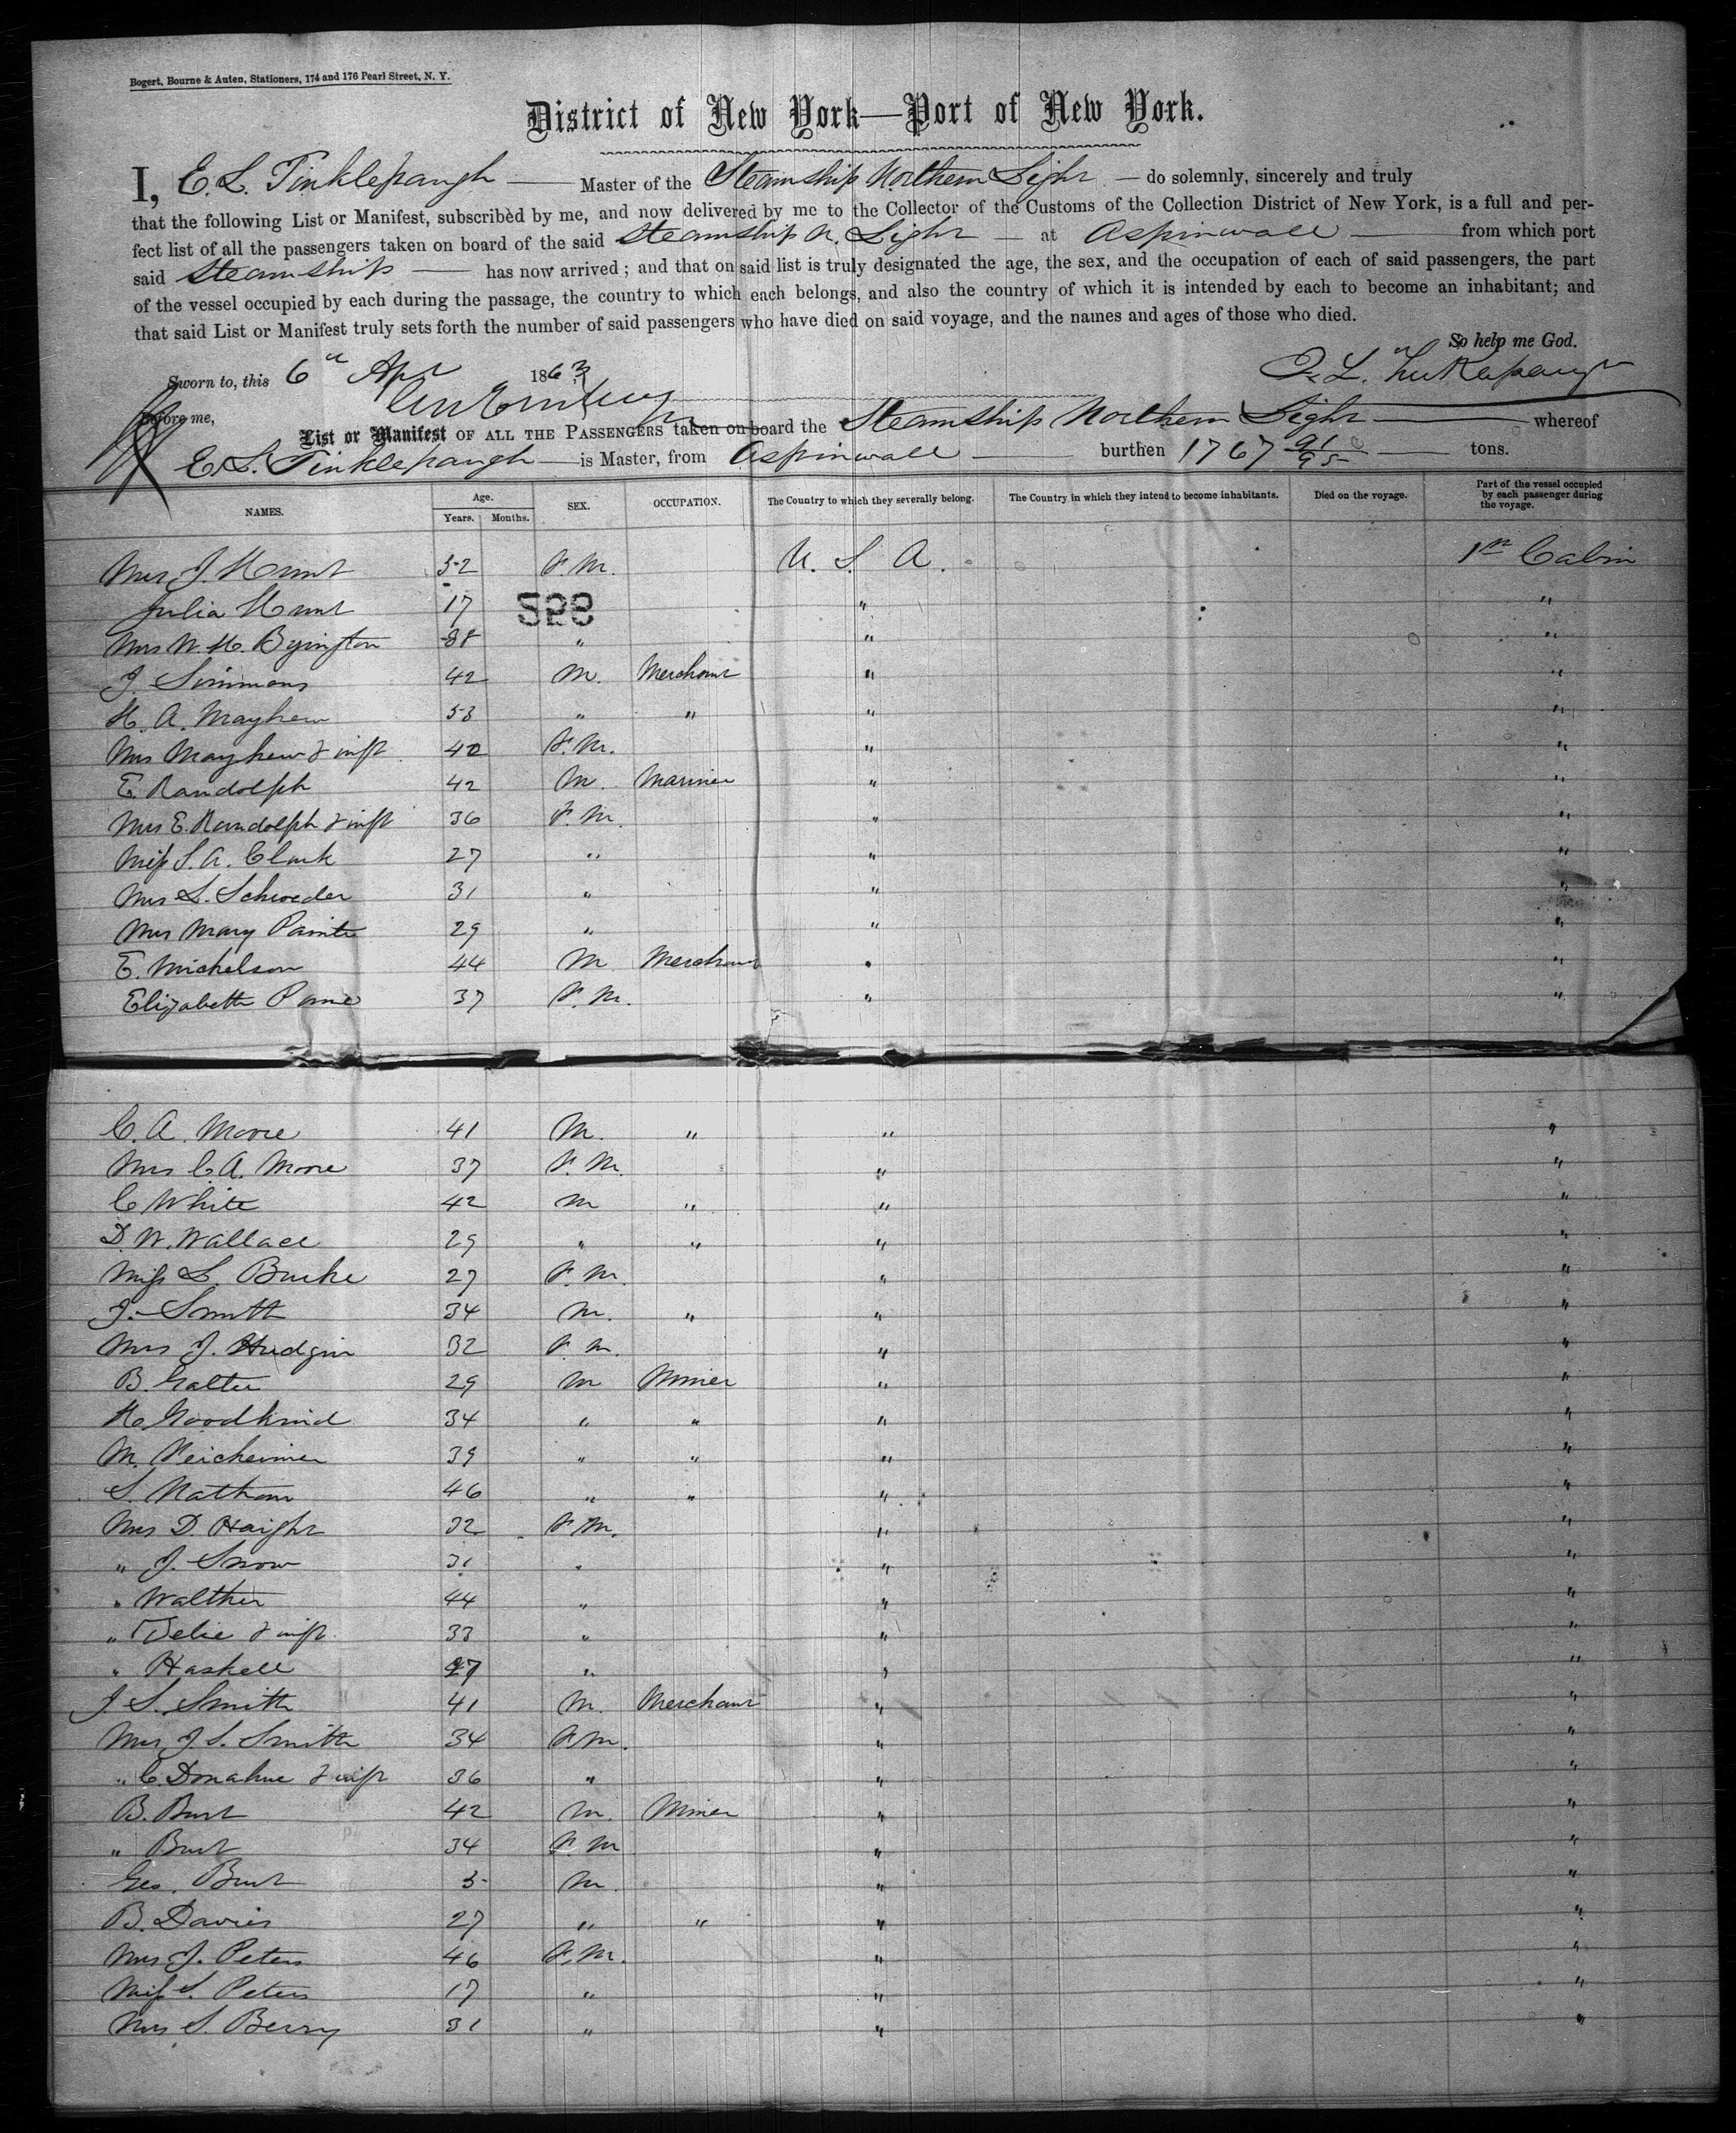 Bogert, Bourne & Auten, Stationers, 174 and 176 Pearl Street, N. Y.
District of New York—Port of New York.
I, E. L. Tinklepaugh — Master of the Steamship Northern Light — do solemnly, sincerely and truly
that the following List or Manifest, subscribed by me, and now delivered by me to the Collector of the Customs of the Collection District of New York, is a full and per-
fect list of all the passengers taken on board of the said Steamship N. Light — at Aspinwall — from which port
said Steamship — has now arrived; and that on said list is truly designated the age, the sex, and the occupation of each of said passengers, the part
of the vessel occupied by each during the passage, the country to which each belongs, and also the country of which it is intended by each to become an inhabitant; and
that said List or Manifest truly sets forth the number of said passengers who have died on said voyage, and the names and ages of those who died.
So help me God.
Sworn to, this 6th Apr 1863 E. L. Tinklepaugh
Before me,
List or Manifest OF ALL THE PASSENGERS taken on board the Steamship Northern Light — whereof
E. L. Tinklepaugh — is Master, from Aspinwall — burthen 1767 91/95 — tons.
NAMES. Age. Years. Months. SEX. OCCUPATION. The Country to which they severally belong. The Country in which they intend to become inhabitants. Died on the voyage. Part of the vessel occupied by each passenger during the voyage.
Mrs J. Hunt 52 F.M. U. S. A. 1st Cabin
Julia Hunt 17 " "
595
Mrs W. H. Byington 38 " " "
J. Simmons 42 M. Merchant " "
H. A. Mayhew 53 " " " "
Mrs Mayhew & inft 40 F.M. " "
E. Randolph 42 M. Mariner " "
Mrs E. Randolph & inft 36 F.M. " "
Miss S. A. Clark 27 " " "
Mrs L. Schroeder 31 " " "
Mrs Mary Painter 29 " " "
E. Michelson 44 M Merchant " "
Elizabeth Paine 37 F.M. " "
C. A. Moore 41 M. " " "
Mrs C. A. Moore 37 F.M. " "
C White 42 M " " "
D. W. Wallace 29 " " " "
Miss L. Burke 27 F.M. " "
J. Smith 34 M. " " "
Mrs J. Hudgin 32 F.M. " "
B. Galter 29 M Miner " "
H. Goodkind 34 " " " "
M. Feicheimer 39 " " " "
S. Nathan 46 " " " "
Mrs D. Haight 32 F.M. " "
" J. Snow 31 " " "
" Walther 44 " " "
" Delie & inft 33 " " "
" Haskell 27 " " "
J. S. Smith 41 M. Merchant " "
Mrs J. S. Smith 34 F.M. " "
" C. Donahue & inft 36 " " "
B. Burt 42 M. Miner " "
" Burt 34 F.M " "
Geo. Burt 5 M. " "
B. Davies 27 " " " "
Mrs J. Peters 46 F.M. " "
Miss S. Peters 17 " " "
Mrs S. Berry 31 " " "